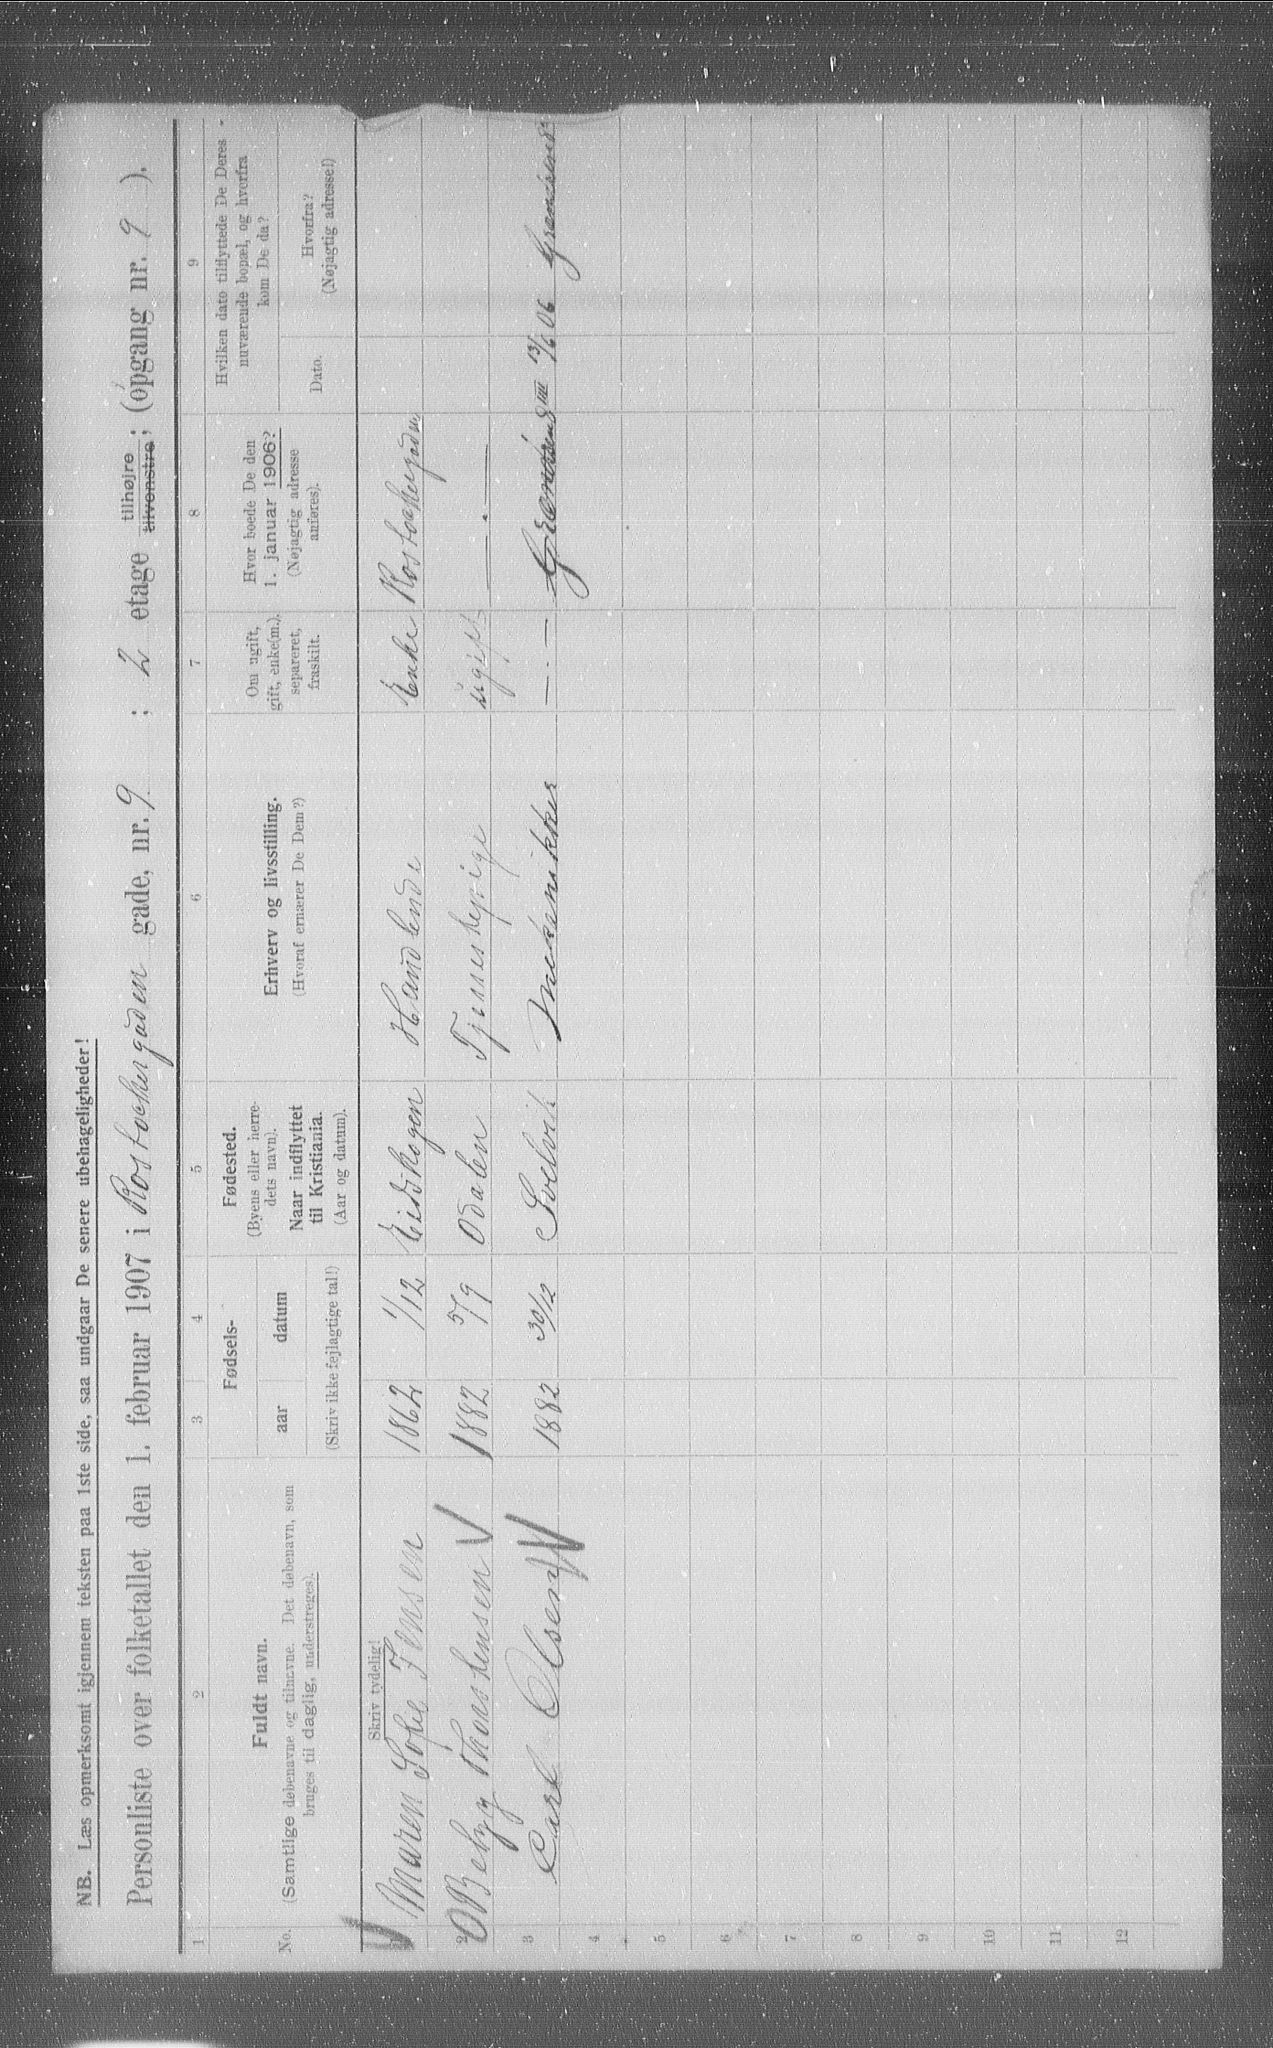 NB. Læs opmerksomt igjennem teksten paa 1ste side, saa undgaar De senere ubehageligheder!
Personliste over folketallet den 1. februar 1907 i Rostockergaden gade, nr. 9 ; 2 etage tilhøjre tilvenstre; (opgang nr. 9 ).
1 2 3 4 5 6 7 8 9
No.
Fuldt navn.
(Samtlige døbenavne og tilnavne. Det døbenavn, som
bruges til daglig, understreges).
Fødsels-
aar datum
(Skriv ikke fejlagtige tal!)
Fødested.
(Byens eller herre-
dets navn).
Naar indflyttet
til Kristiania.
(Aar og datum).
Erhverv og livsstilling.
(Hvoraf ernærer De Dem?)
Om ugift,
gift, enke(m.),
separeret,
fraskilt.
Hvor boede De den
1. januar 1906?
(Nøjagtig adresse
anføres).
Hvilken dato tilflyttede De Deres
nuværende bopæl, og hvorfra
kom De da?
Dato.
Hvorfra?
(Nøjagtig adresse!)
Skriv tydelig!
Maren Sofie Jensen 1862 1/12 Eidskogen Handlende Enke Rostockergaden
2 Thorstensen 1882 5/9 Odalen Tjenestepige ugift — . —
3 Carl Olsen 1882 30/12 Svelvik Mekaniker — . — 13/6 06
4
5
6
7
8
9
10
11
12